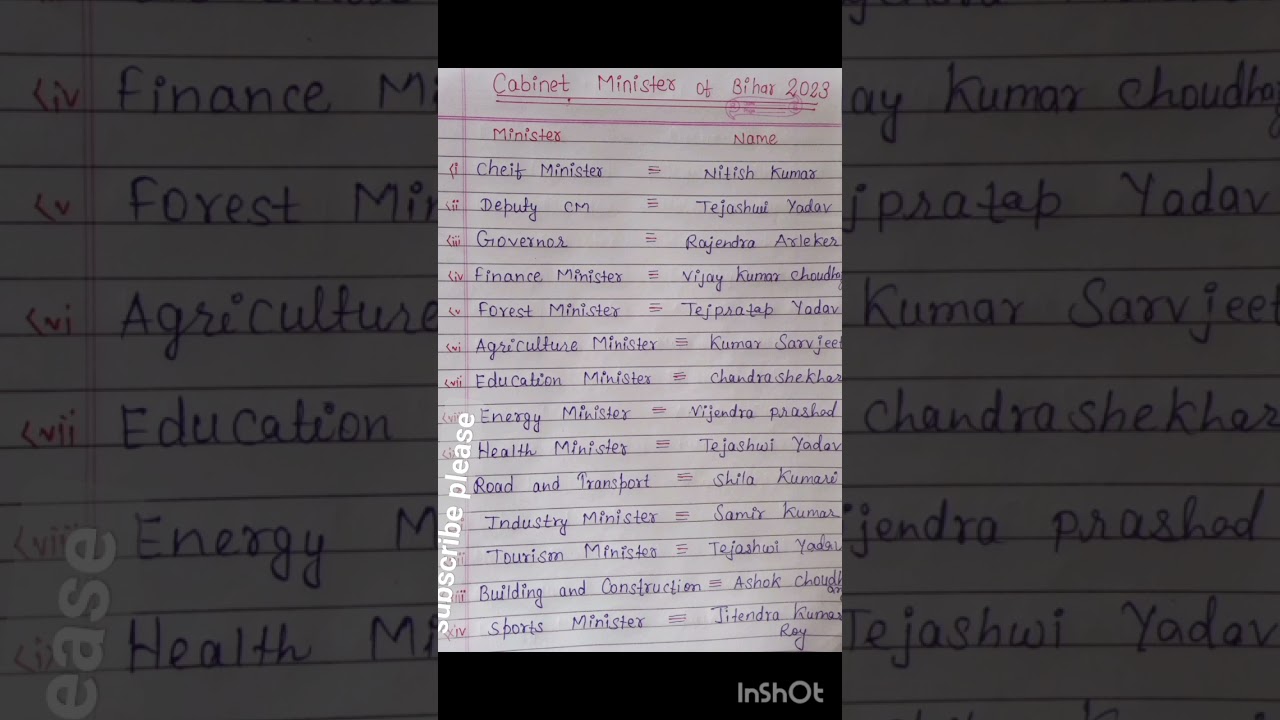 Cabinet Minister of Bihar 2023
Minister Name
(i Cheif Minister = Nitish Kumar
(ii Deputy CM ≡ Tejashwi Yadav
(iii Governor ≡ Rajendra Arleker
(iv Finance Minister ≡ Vijay Kumar Choudha
(v Forest Minister = Tejpratap Yadav
(vi Agriculture Minister ≡ Kumar Sarvjeet
(vii Education Minister ≡ Chandrashekhar
(viii Energy Minister = Vijendra prashad
(ix Health Minister ≡ Tejashwi Yadav
Road and Transport = Shila Kumari
Industry Minister ≡ Samir Kumar
Tourism Minister ≡ Tejashwi Yadav
Building and Construction ≡ Ashok Choudhary
xiv Sports Minister ≡ Jitendra Kumar
Roy
subscribe please
InShOt